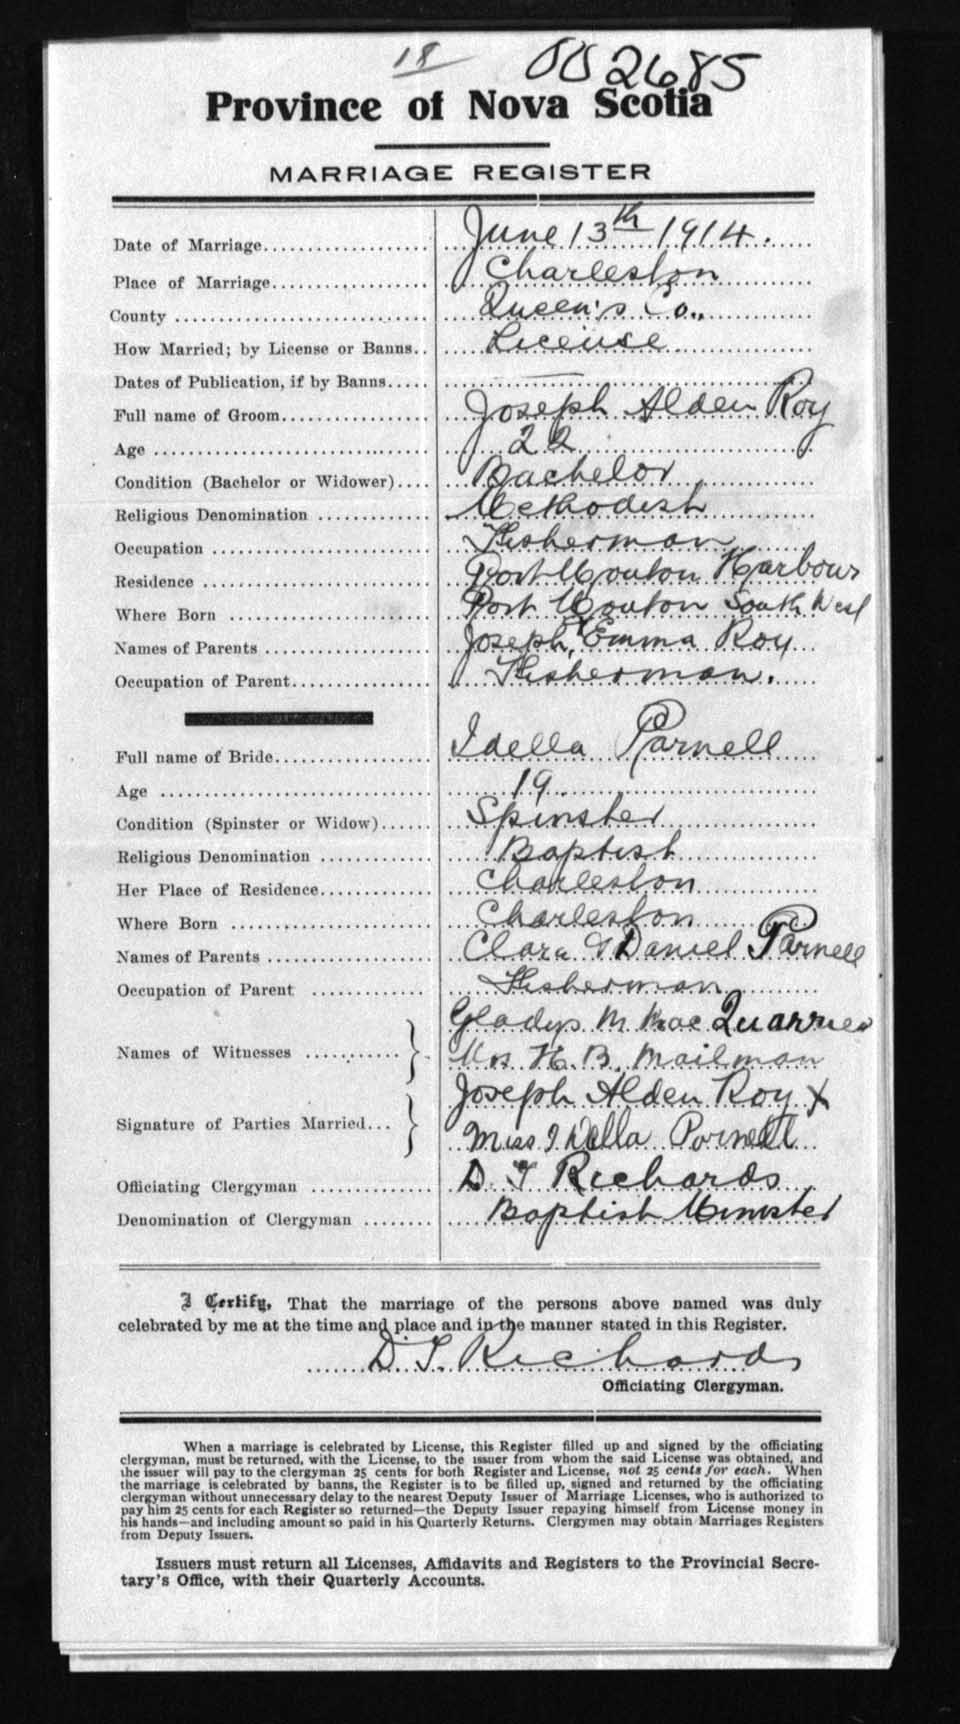 18 002685
Province of Nova Scotia
MARRIAGE REGISTER
Date of Marriage.................... June 13th 1914.
Place of Marriage.................. Charleston
County ............................. Queen's Co.,
How Married; by License or Banns.. License
Dates of Publication, if by Banns..... —
Full name of Groom.................. Joseph Alden Roy
Age ................................ 22
Condition (Bachelor or Widower).... Bachelor
Religious Denomination .............. Methodist
Occupation ......................... Fisherman
Residence .......................... Port Mouton Harbour
Where Born ........................ Port Mouton South West
Names of Parents .................... Joseph, & Emma Roy
Occupation of Parent................. Fisherman.
Full name of Bride................... Idella Parnell
Age ................................ 19
Condition (Spinster or Widow)...... Spinster
Religious Denomination .............. Baptist
Her Place of Residence.............. Charleston
Where Born ........................ Charleston
Names of Parents .................... Clara & Daniel Parnell
Occupation of Parent .............. Fisherman
Gladys M Mac Quarrie
Names of Witnesses ............
Mrs H. B. Mailman
Joseph Alden Roy X
Signature of Parties Married...
Miss I Della Parnell
Officiating Clergyman .............. D. T Richards
Denomination of Clergyman ........ Baptist Minister
I Certify, That the marriage of the persons above named was duly
celebrated by me at the time and place and in the manner stated in this Register.
D. T. Richards
Officiating Clergyman.
When a marriage is celebrated by License, this Register filled up and signed by the officiating
clergyman, must be returned, with the License, to the issuer from whom the said License was obtained, and
the issuer will pay to the clergyman 25 cents for both Register and License, not 25 cents for each. When
the marriage is celebrated by banns, the Register is to be filled up, signed and returned by the officiating
clergyman without unnecessary delay to the nearest Deputy Issuer of Marriage Licenses, who is authorized to
pay him 25 cents for each Register so returned—the Deputy Issuer repaying himself from License money in
his hands—and including amount so paid in his Quarterly Returns. Clergymen may obtain Marriages Registers
from Deputy Issuers.
Issuers must return all Licenses, Affidavits and Registers to the Provincial Secre-
tary's Office, with their Quarterly Accounts.